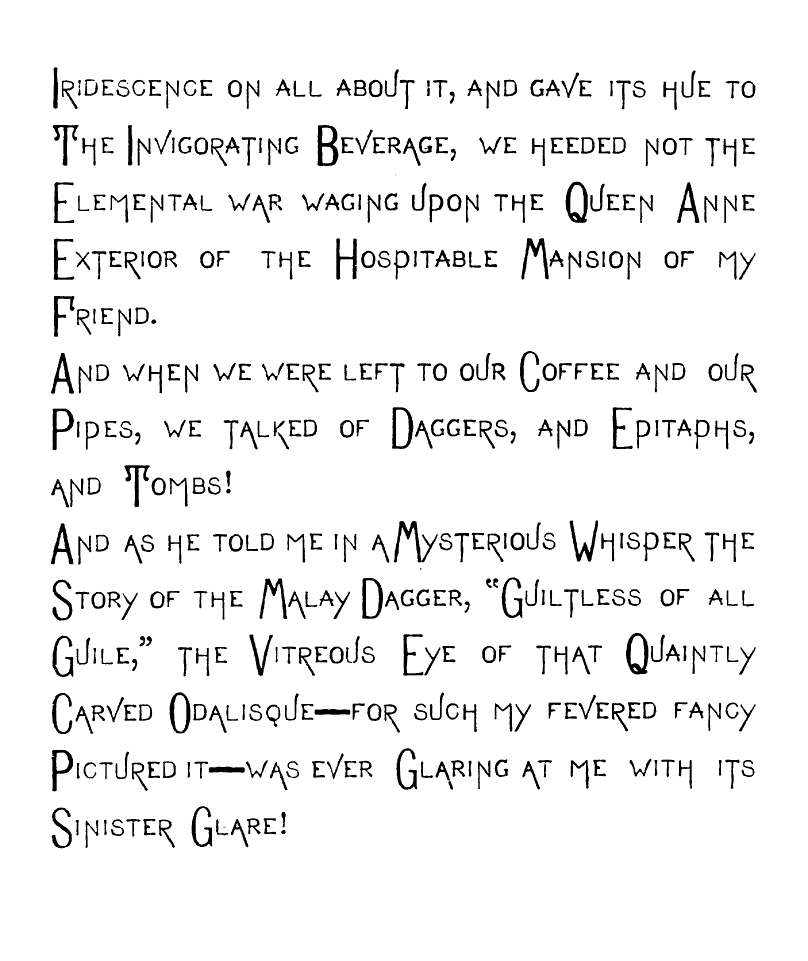 Iridescence on all about it, and gave its hue to
The Invigorating Beverage, we heeded not the
Elemental war waging upon the Queen Anne
Exterior of the Hospitable Mansion of my
Friend.
And when we were left to our Coffee and our
Pipes, we talked of Daggers, and Epitaphs,
and Tombs!
And as he told me in a Mysterious Whisper the
Story of the Malay Dagger, “Guiltless of all
Guile,” the Vitreous Eye of that Quaintly
Carved Odalisque—for such my fevered fancy
Pictured it—was ever Glaring at me with its
Sinister Glare!